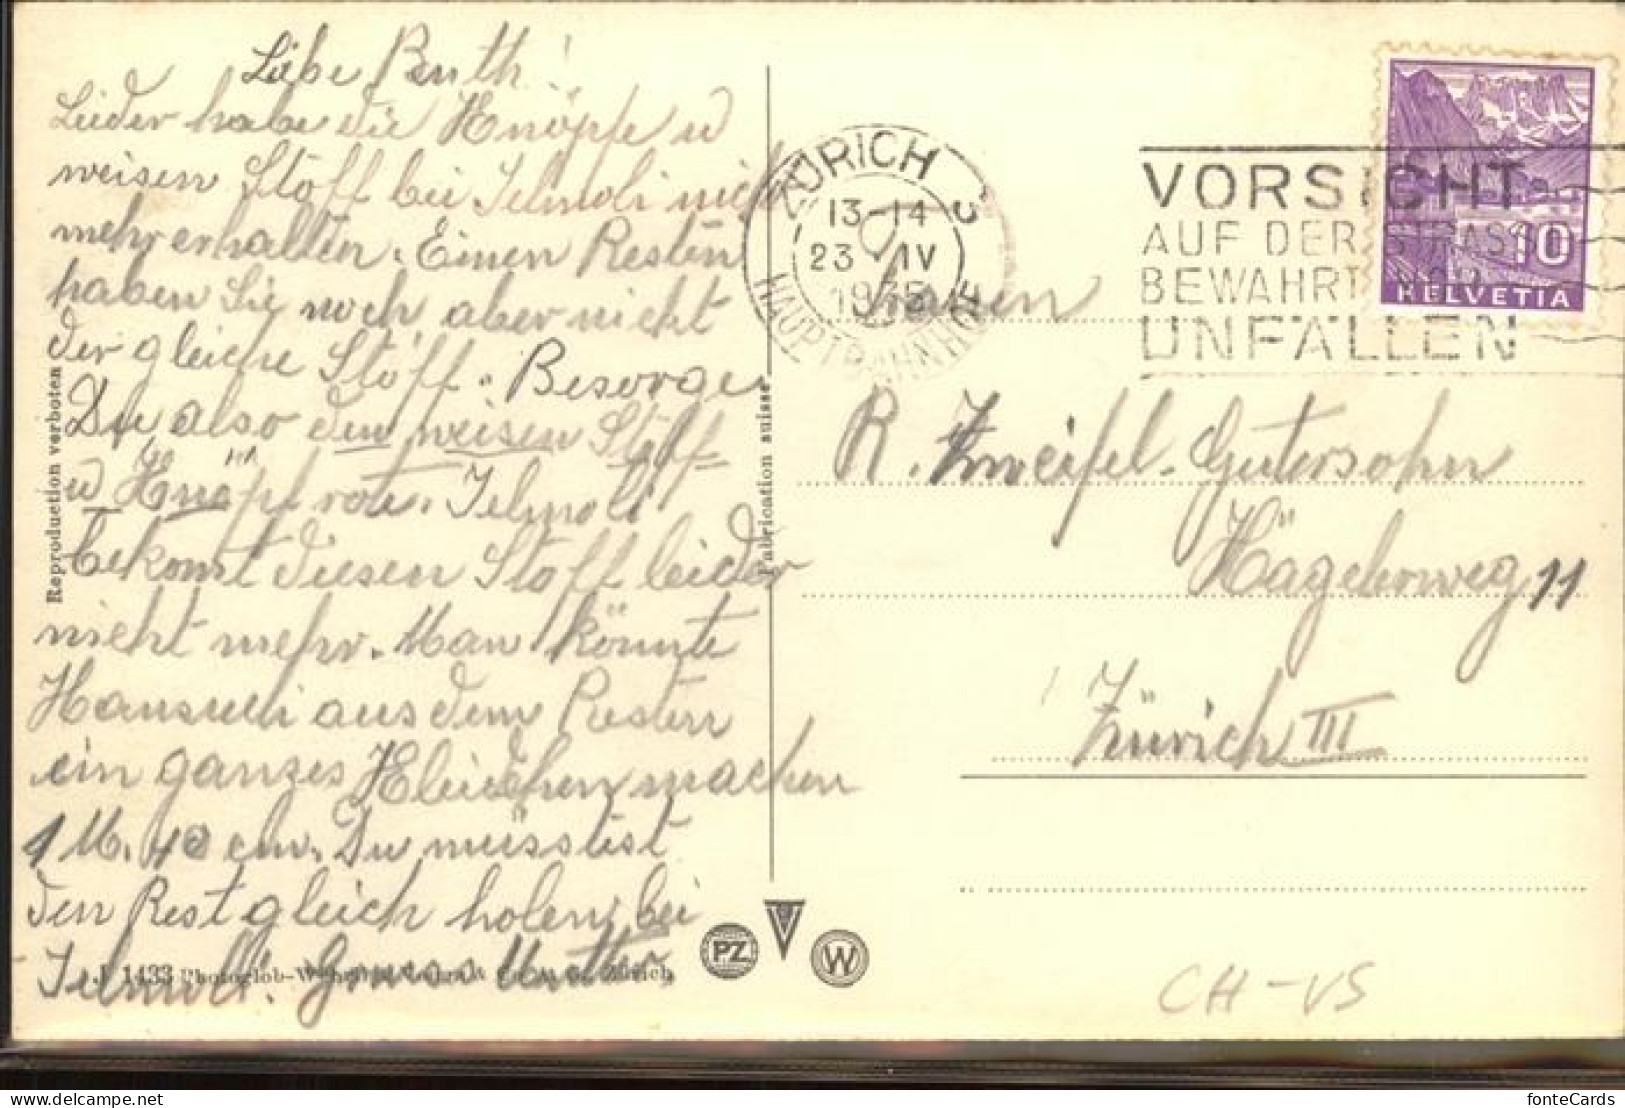 Liebe Beuth!
Leider habe die Knöpfe u
weisen Stoff bei Jelmoli nicht
mehr erhalten. Einen Resten
haben Sie noch aber nicht
der gleiche Stoff. Besorge
Du also den weisen Stoff
u Knöpf rote. Jelmoli
bekomt diesen Stoff leider
nicht mehr. Man könnte
Hansueli aus dem Resten
ein ganzes Kleidchen machen
1 M. 40 cm. Du müsstist
den Rest gleich holen bei
Jelmoli. Gruss Mutter
Reproduction verboten
Fabrication suisse
J 1433 Photoglob-Wehrli & Vouga & Co. A. G., Zürich
PZ
V
W
ZÜRICH
13-14
23 IV
1935
HAUPTBAHNHOF
VORSICHT
AUF DER STRASSE
BEWAHRT VOR
UNFÄLLEN
10
HELVETIA
R. Zweifel-Gutersohn
Hägelerweg 11
Zürich III
CH-VS
fonteCards